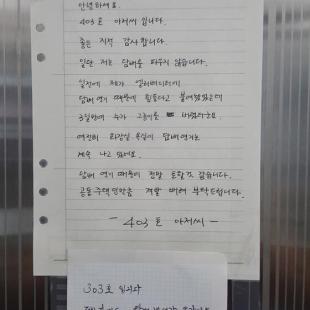 안녕하세요.
403호 아저씨 입니다.
좋은 지적 감사합니다.
일단 저는 담배를 피우지 않습니다.
일전에 제가 엘리베이터에
담배 연기 때문에 힘들다고 붙여놨었는데
3일만에 누가 고의로 버렸더군요.
여전히 화장실 욕실에 담배연기는
계속 나고 있네요.
담배 연기 때문에 정말 토할것 같습니다.
공동주택인만큼 제발 배려 부탁드립니다.
- 403호 아저씨 -
303호 입니다